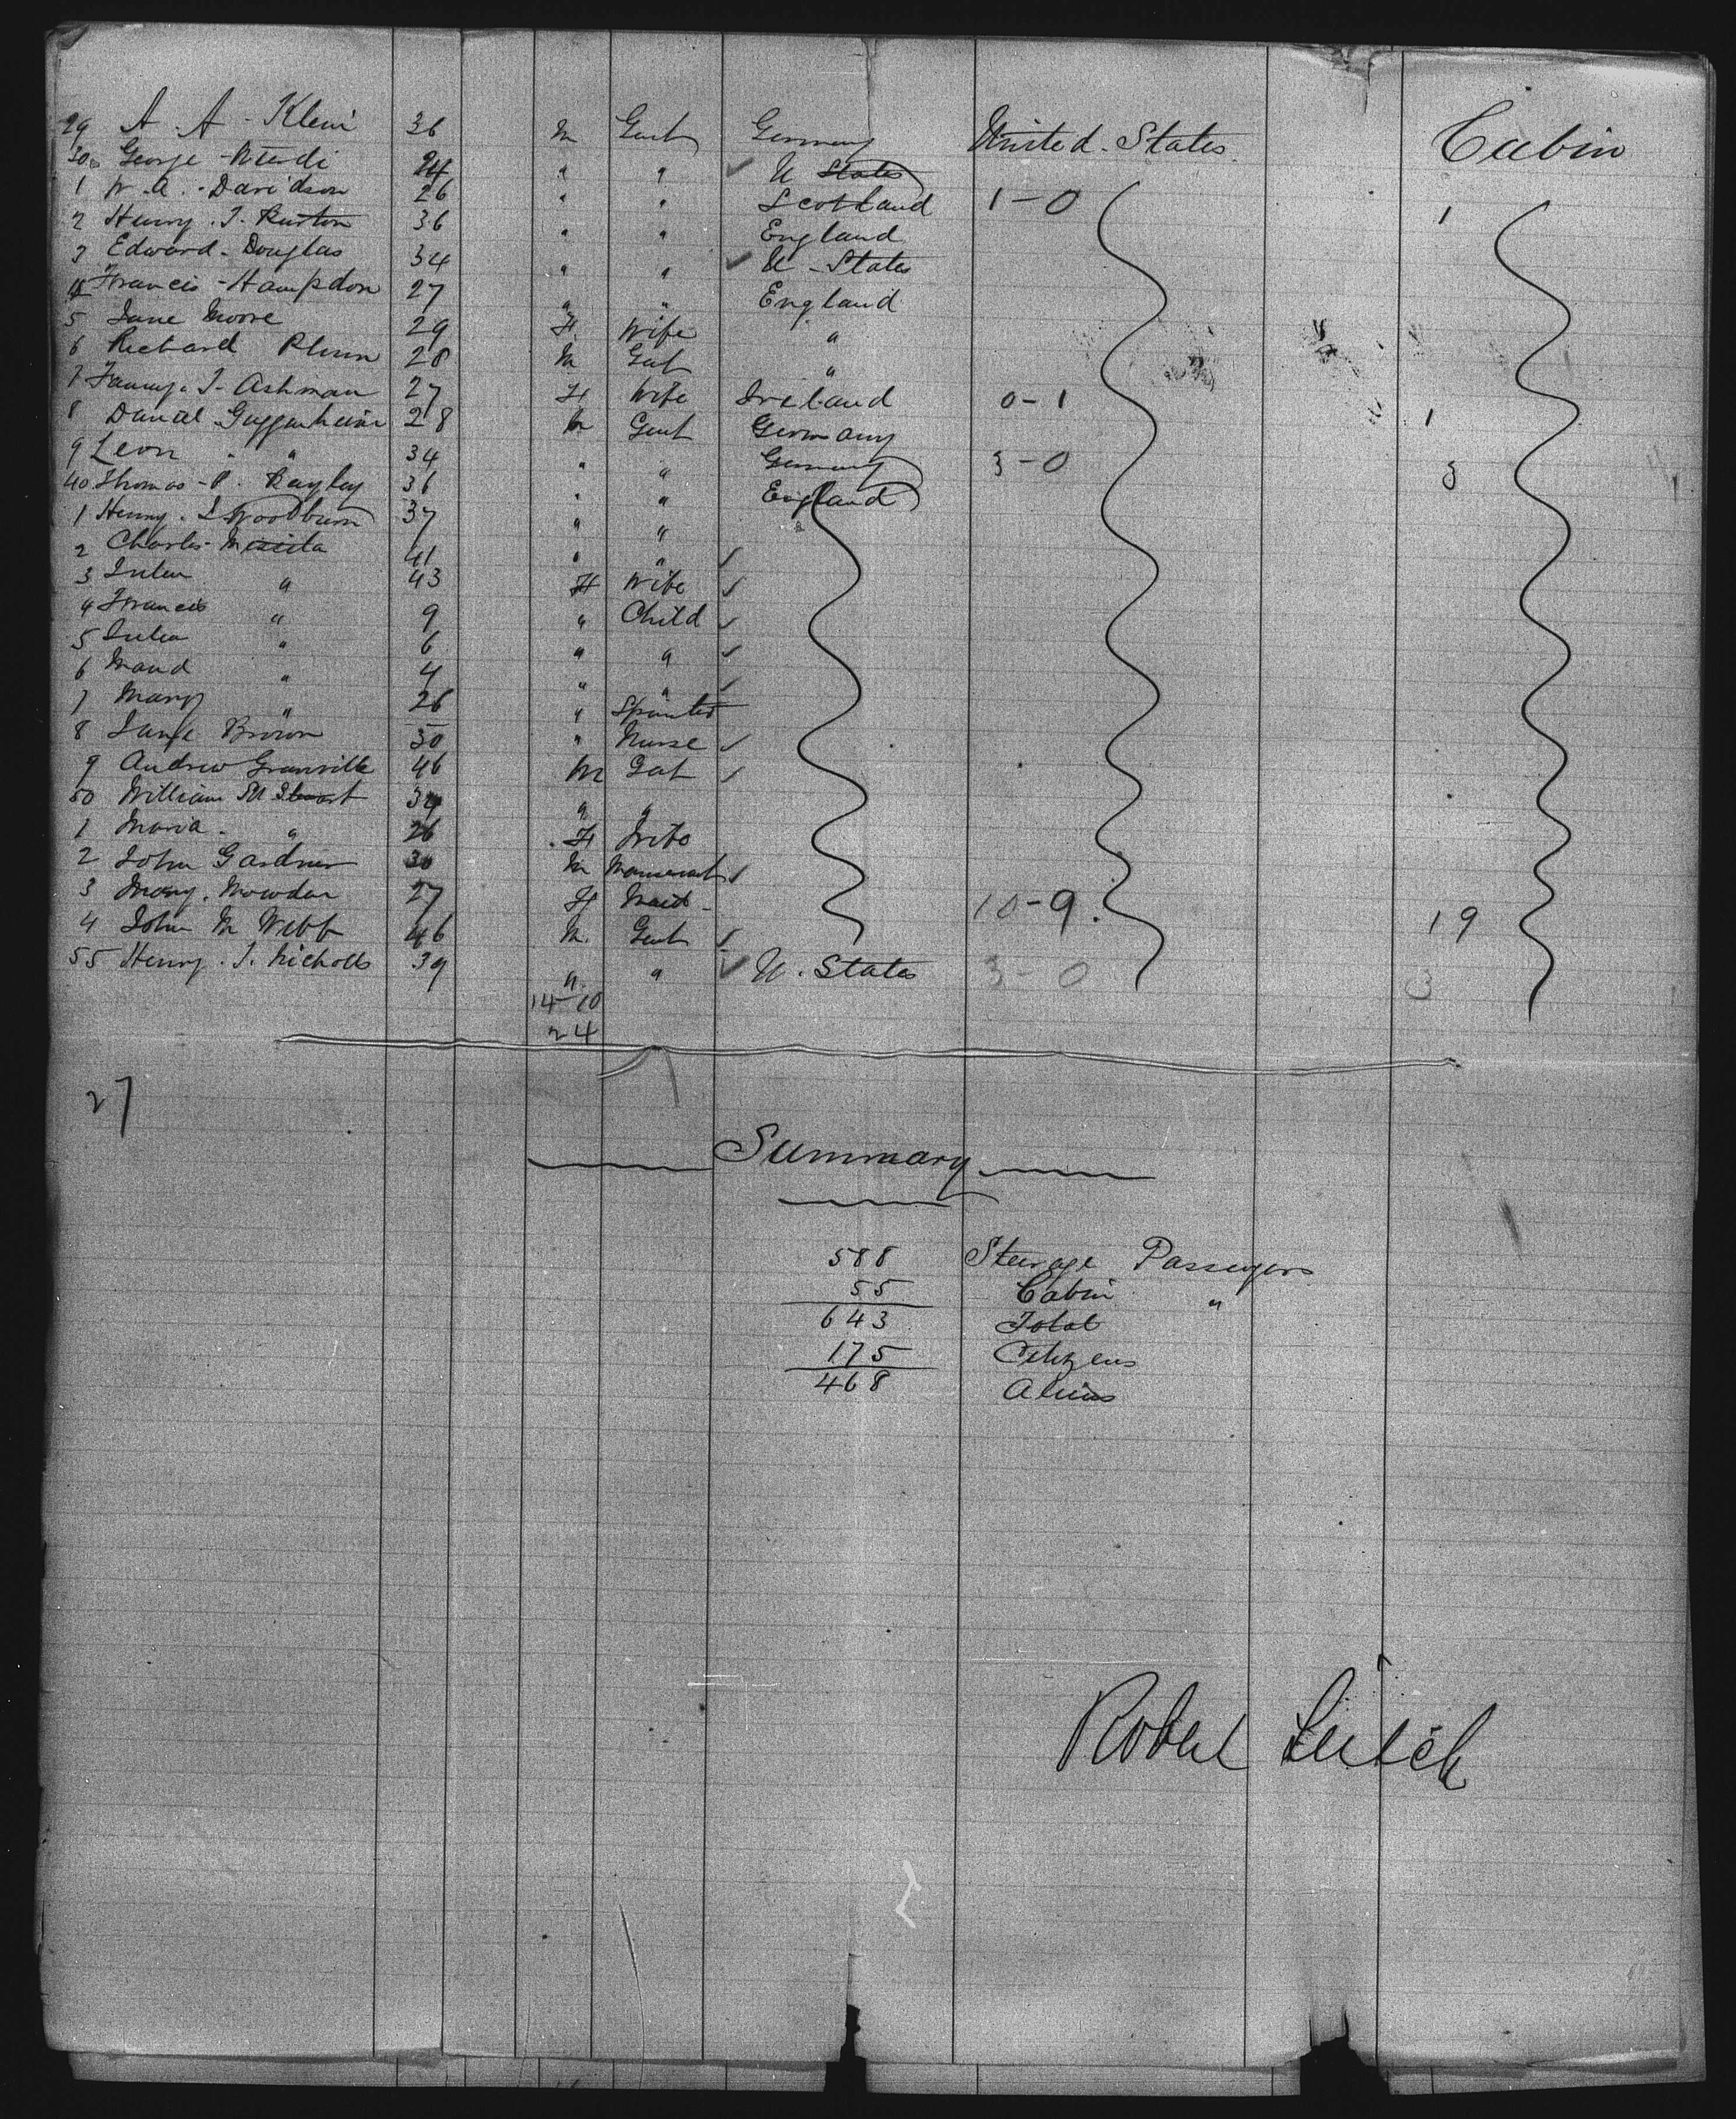 29 A. A. Klein 36 M Gent Germany United States Cabin
30 George 24 " " ✓ U States
1 W. A. Davidson 26 " " Scotland 1-0 1
2 Henry. J. Burton 36 " " England
3 Edward Douglas 34 " " ✓ U-States
4 Francis Hampdon 27 " " England
5 Jane Moore 29 F Wife "
6 Richard 28 M Gent "
7 Fanny. J. Ashman 27 F Wife Ireland 0-1 1
8 Danial Guggenheim 28 M Gent Germany
9 Leon " " 34 " " Germany 3-0 3
40 Thomas P. Bayley 36 " " England
1 Henry. J Woodburn 37 " "
2 Charles 41 " " ✓
3 Julia " 43 F Wife ✓
4 Francis " 9 " Child ✓
5 Julia " 6 " " ✓
6 Maud " 4 " " ✓
7 Mary " 26 " Spinster
8 Jane Brown 30 " Nurse ✓
9 Andrew Granville 46 M Gent ✓
50 William M Stewart 34 " "
1 Maria. " 26 F Wife
2 John Gardner 30 M Manservant ✓
3 Mary. Mowdan 27 F Maid 10-9. 19
4 John M Webb 46 M. Gent ✓
55 Henry. J. Nicholls 39 " " ✓ U. States 3-0 3
14-10
24
27
Summary
588 Steerage Passengers
55 Cabin "
643 Total
175 Citizens
468 Aliens
Robert Leitch